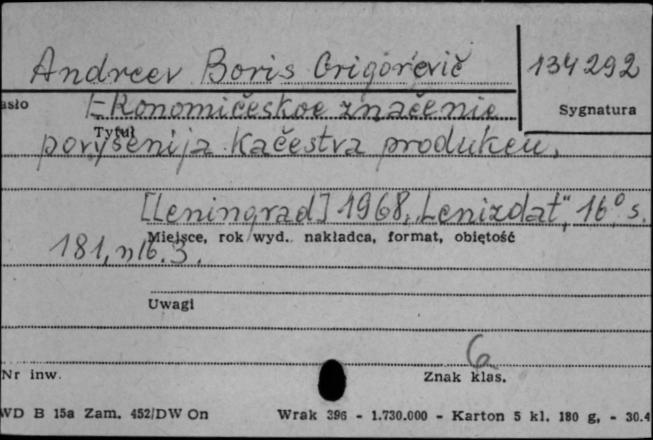 Andreev Boris Grigor'evič
134292
asło
Ekonomičeskoe značenie
Sygnatura
Tytuł
povyšenija kačestva produkcii,
[Leningrad] 1968, „Lenizdat", 16° s.
Miejsce, rok wyd. nakładca, format, objętość
181, nlb. 3.
Uwagi
6
Nr inw.
Znak klas.
WD B 15a Zam. 452/DW On
Wrak 396 - 1.730.000 - Karton 5 kl. 180 g. - 30.4